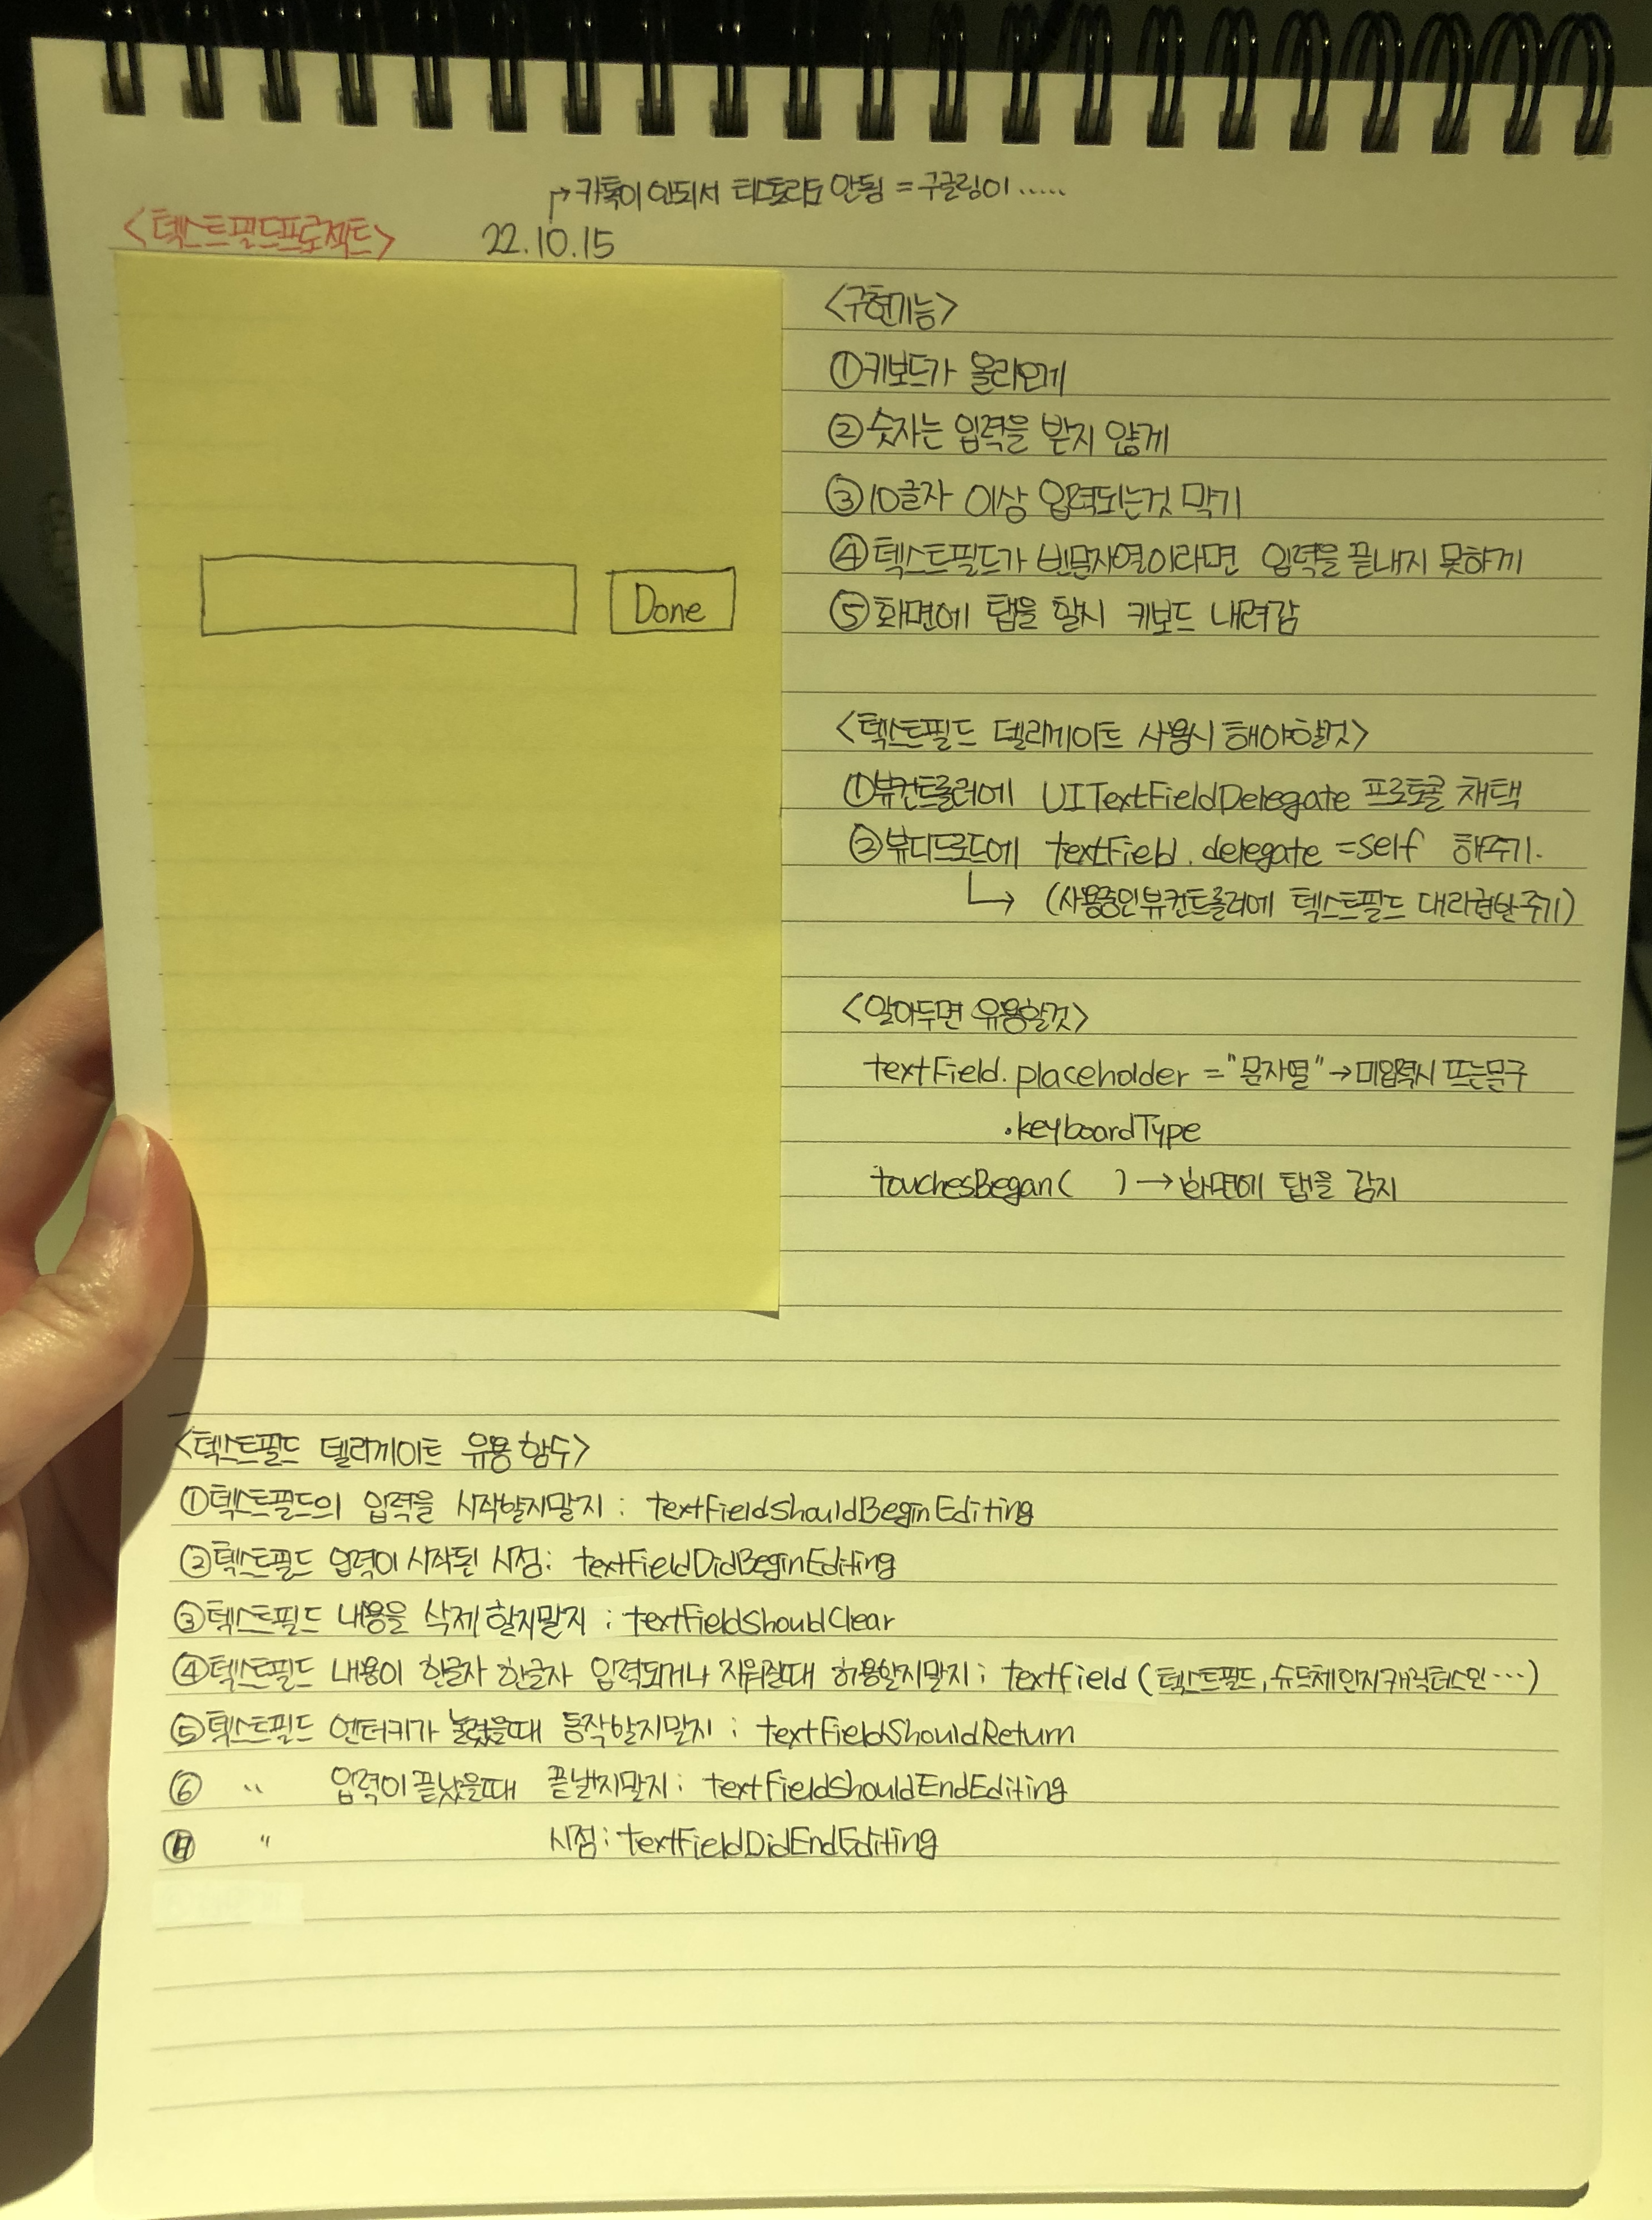 →카톡이 안되서 티스토리도 안됨 = 구글링이 .....
<텍스트필드프로젝트> 22.10.15
Done
<구현기능>
①키보드가 올라오게
②숫자는 입력을 받지 않게
③10글자 이상 입력되는것 막기
④텍스트필드가 빈문자열이라면 입력을 끝내지 못하게
⑤화면에 탭을 할시 키보드 내려감
<텍스트필드 델리게이트 사용시 해야할것>
①뷰컨트롤러에 UITextFieldDelegate 프로토콜 채택
②뷰디드로드에 textField.delegate = self 해주기.
→ (사용중인뷰컨트롤러에 텍스트필드 대리권한주기)
<알아두면 유용할것>
textField.placeholder = "문자열" → 미입력시 뜨는문구
.keyboardType
touchesBegan( ) → 화면에 탭을 감지
<텍스트필드 델리게이트 유용함수>
①텍스트필드의 입력을 시작할지말지 : textFieldShouldBeginEditing
②텍스트필드 입력이 시작된 시점: textFieldDidBeginEditing
③텍스트필드 내용을 삭제 할지말지 : textFieldShouldClear
④텍스트필드 내용이 한글자 한글자 입력되거나 지워질때 허용할지말지 : textField (텍스트필드, 슈드체인지캐릭터스인...)
⑤텍스트필드 엔터키가 눌렸을때 동작할지말지 : textFieldShouldReturn
⑥ " 입력이 끝났을때 끝낼지말지 : textFieldShouldEndEditing
" 시점 : textFieldDidEndEditing